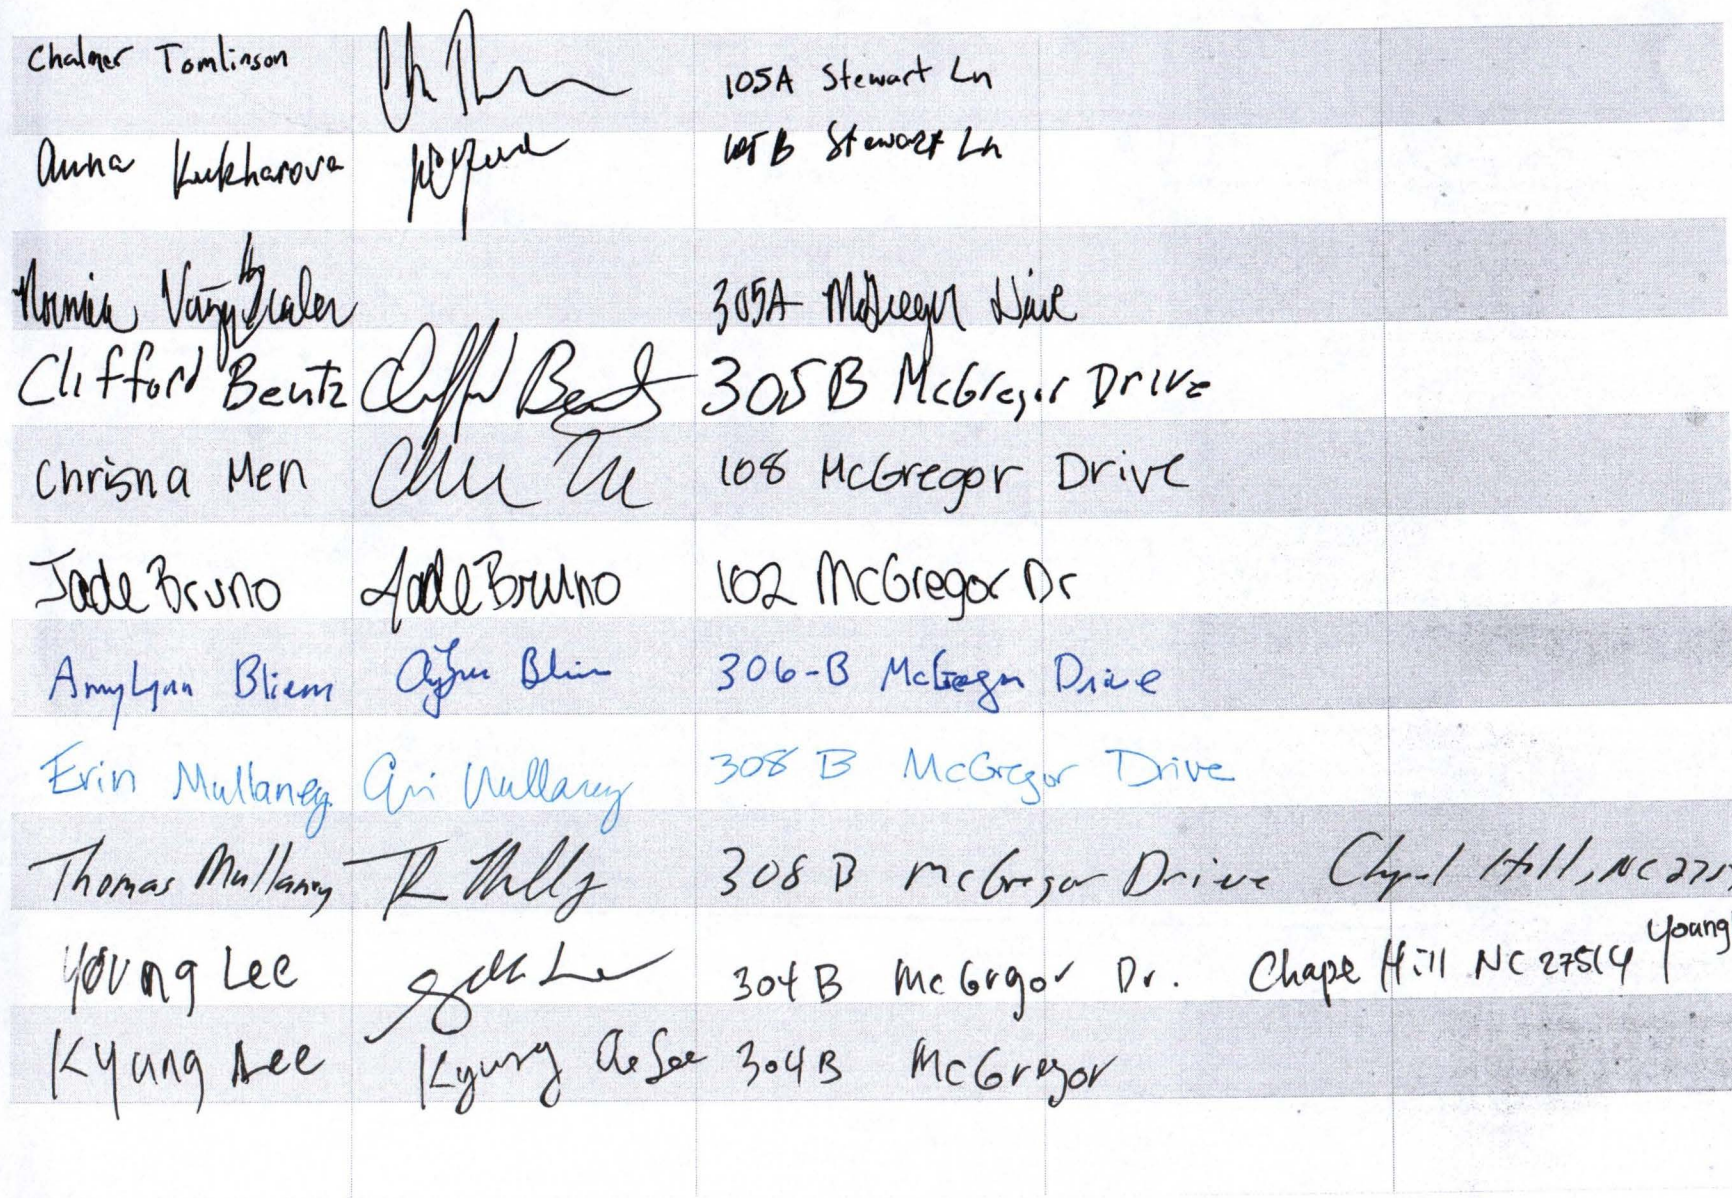 Chalmer Tomlinson 105A Stewart Ln
Anna Kukharova 105B Stewart Ln
305A McGregor Drive
Clifford Bentz Clifford Bentz 305B McGregor Drive
Chrisna Men 108 McGregor Drive
Jade Bruno Jade Bruno 102 McGregor Dr
AmyLynn Bliem 306-B McGregor Drive
Erin Mullaney Erin Mullaney 308 B McGregor Drive
Thomas Mullaney 308 B McGregor Drive Chapel Hill, NC 275
Young Lee 304 B McGrgor Dr. Chape Hill NC 27514 Young
Kyung Lee Kyung Ae Lee 304 B McGregor